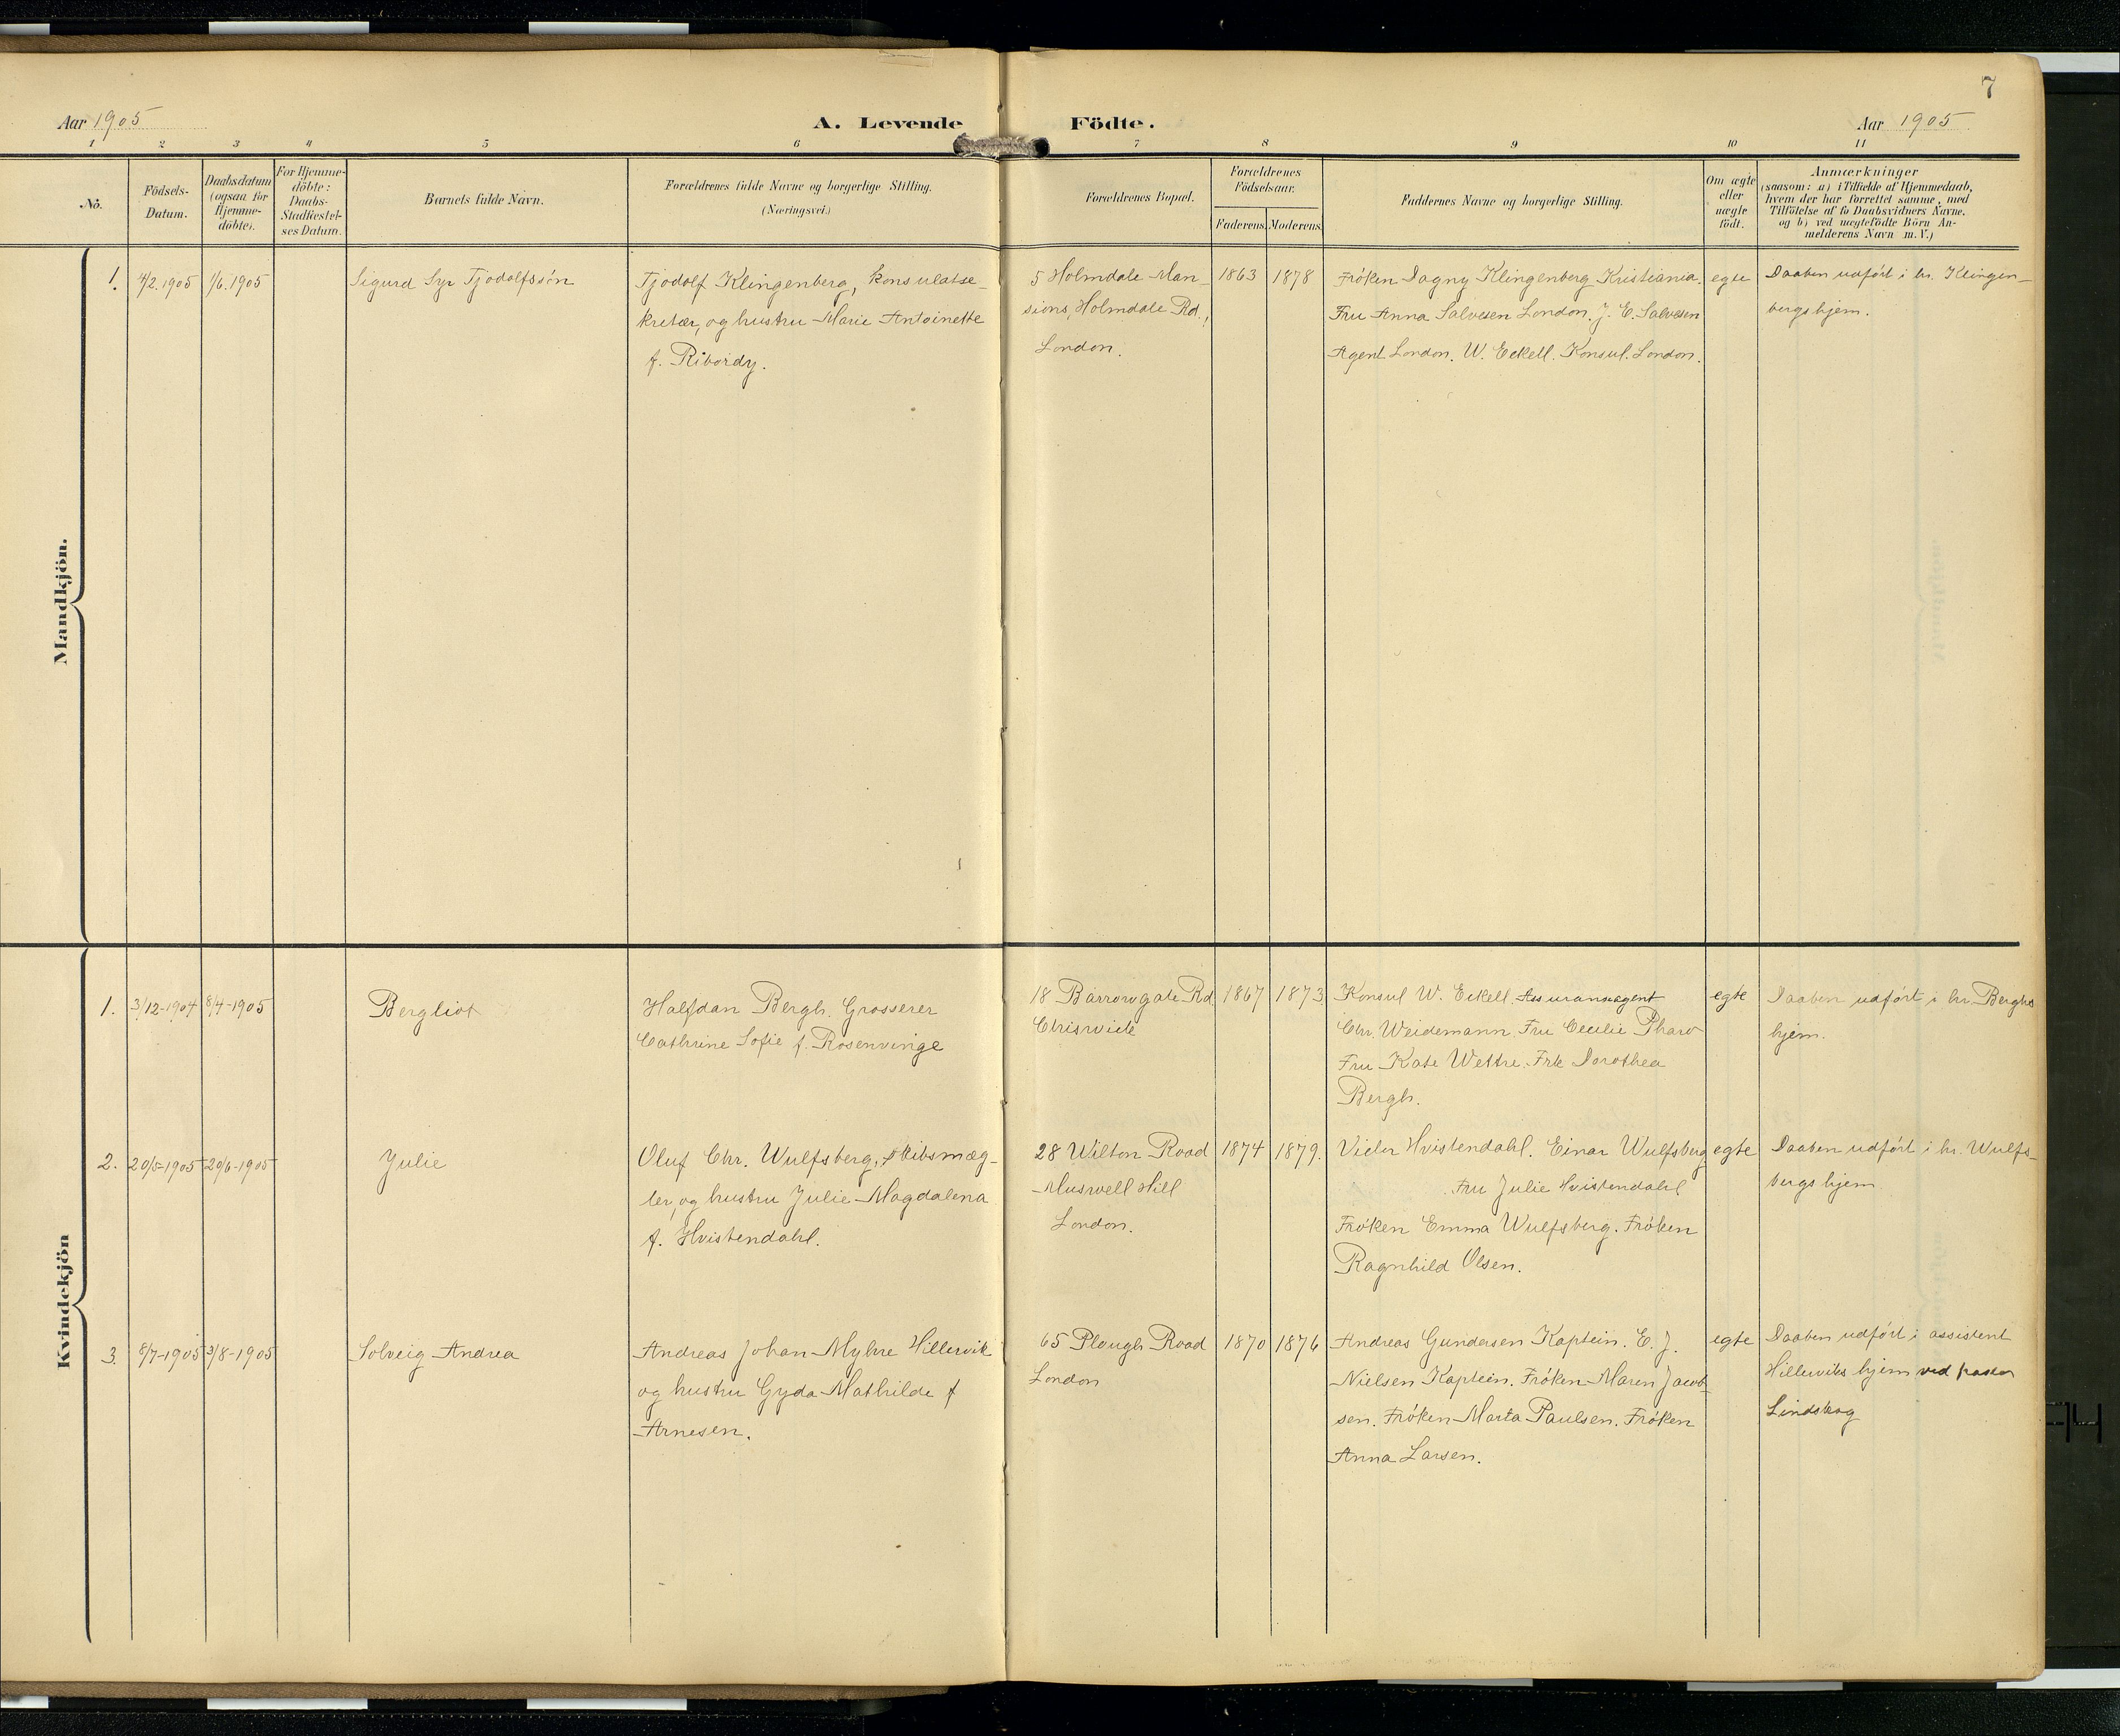 7
Aar 1905
A. Levende Födte.
Aar 1905
1 2 3 4 5 6 7 8 9 10 11
No.
Födsels-
Datum.
Daabsdatum
(ogsaa for
Hjemme-
döbte).
For Hjemme-
döbte:
Daabs-
Stadfæstel-
ses Datum.
Barnets fulde Navn.
Forældrenes fulde Navne og borgerlige Stilling.
(Næringsvei.)
Forældrenes Bopæl.
Forældrenes
Födselsaar.
Faderens. Moderens.
Faddernes Navne og borgerlige Stilling.
Om ægte
eller
uægte
födt.
Anmærkninger
(saasom: a) i Tilfælde af Hjemmedaab,
hvem der har forrettet samme, med
Tilföielse af to Daabsvidners Navne.
og b) ved uægtefödte Börn An-
melderens Navn m. V.)
Mandkjön.
1.
4/2.1905
1/6.1905
Sigurd Syr Tjodolfssön
Tjodolf Klingenberg, konsulatse-
kretær, og hustru Marie Antoinette
f. Ribordy.
5 Holmdale Man-
sions, Holmdale Rd.,
London.
1863
1878
Fröken Dagny Klingenberg Kristiania.
Fru Anna Salvesen London. J. E. Salvesen
Agent London. W. Eckell. Konsul. London.
egte
Daaben udfört i hr. Klingen-
bergs hjem.
Kvindekjön
1.
3/12-1904
8/4-1905
Bergliot
Halfdan Bergh. Grosserer
Cathrine Sofie f. Rosenvinge
18 Barrowgate Rd
Chiswick
1867
1873
Konsul W. Eckell. Assuranseagent
Chr. Weidemann. Fru Cecilie Pharo
Fru Kate Wettre. Frk Dorothea
Bergh.
egte
Daaben udfört i hr. Berghs
hjem.
2.
20/5-1905
20/6-1905
Julie
Oluf Chr. Wulfsberg, skibsmæg-
ler, og hustru Julie Magdalena
f. Hvistendahl.
28 Wilton Road
Muswell Hill
London.
1874
1879.
Victor Hvistendahl. Einar Wulfsberg
Fru Julie Hvistendahl
Fröken Emma Wulfsberg. Fröken
Ragnhild Olsen.
egte
Daaben udfört i hr. Wulfs-
bergs hjem
3.
8/7-1905
3/8-1905
Solveig Andrea
Andreas Johan Myhre Hillervik
og hustru Gyda Mathilde f
Arnesen.
65 Plough Road
London
1870
1876
Andreas Gundersen Kaptein. E. J.
Nielsen Kaptein. Fröken Maren Jacob-
sen. Fröken Marta Paulsen. Fröken
Anna Larsen.
egte
Daaben udfört i assistent
Hillerviks hjem ved pastor
Lindskog